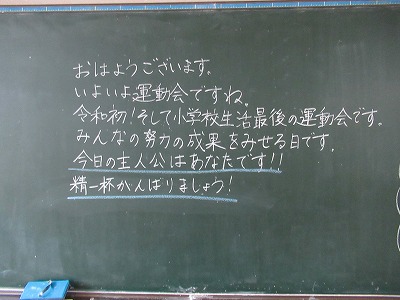 おはようございます。
いよいよ運動会ですね。
令和初！そして小学校生活最後の運動会です。
みんなの努力の成果をみせる日です。
今日の主人公はあなたです!!
精一杯がんばりましょう！